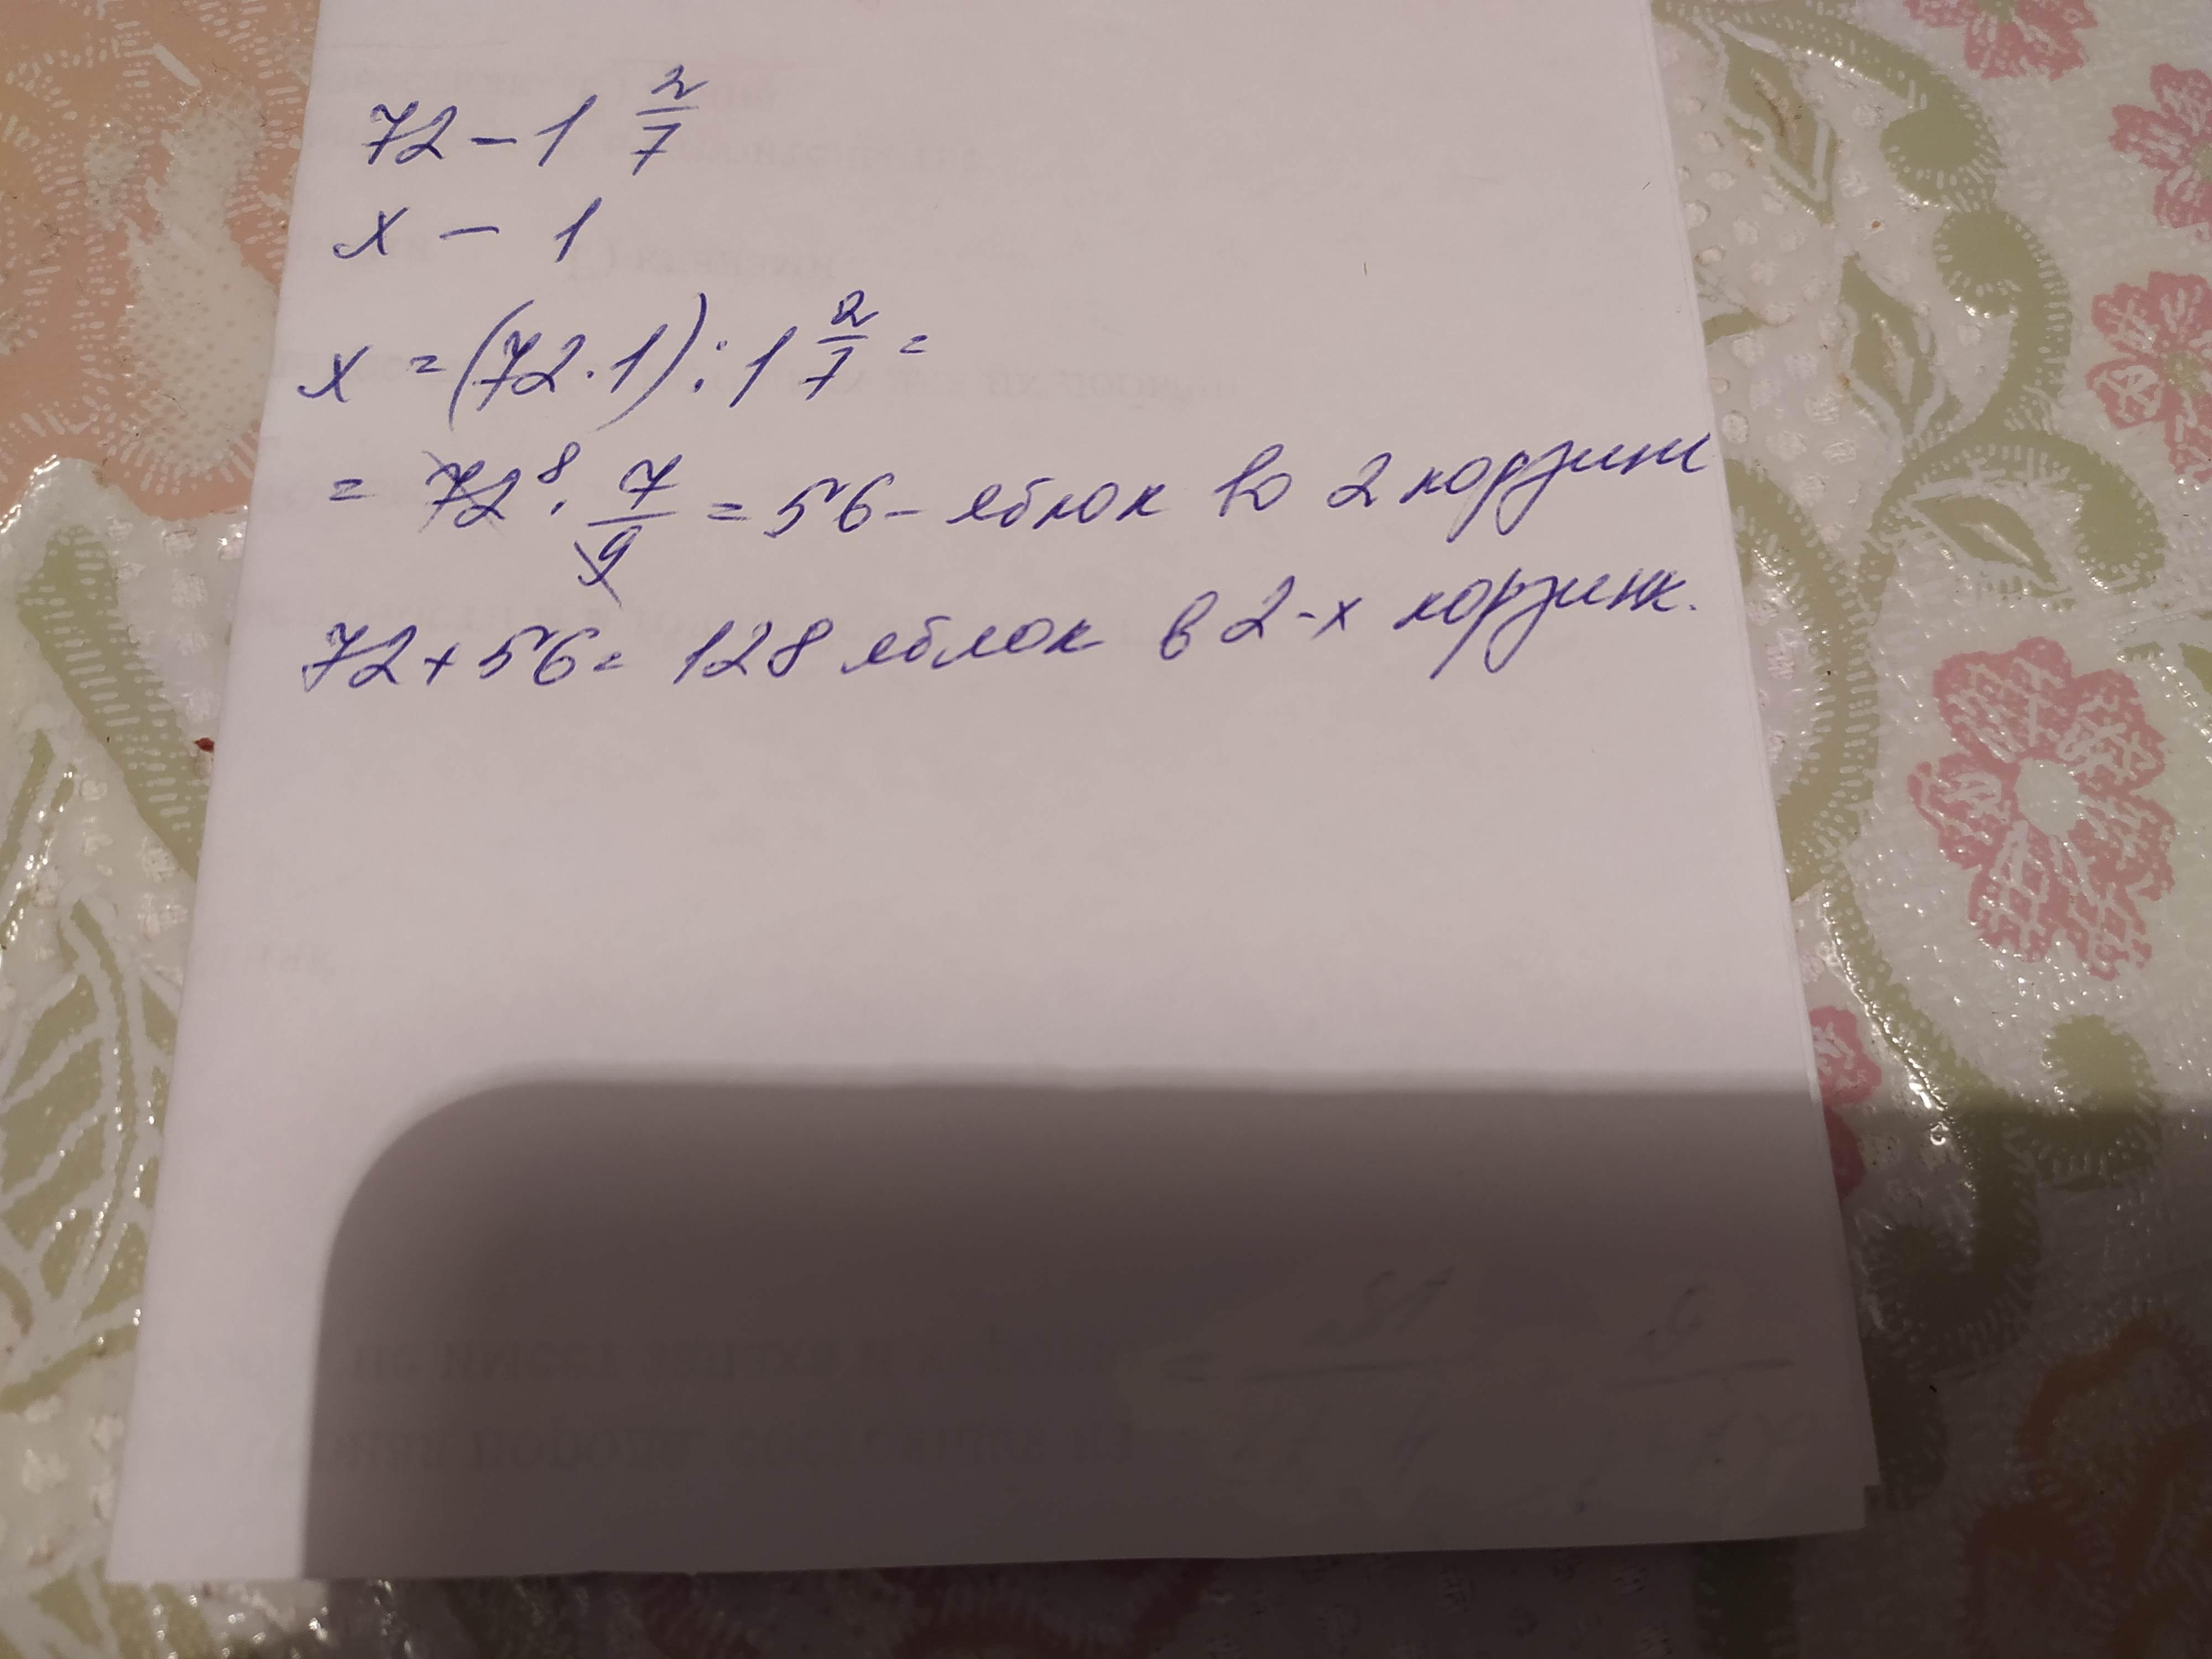 72 - 1 2/7
x - 1
x = (72 · 1) : 1 2/7 =
= 72 8 · 7/9 = 56 - яблок во 2 корзине
72 + 56 = 128 яблок в 2-х корзинк.